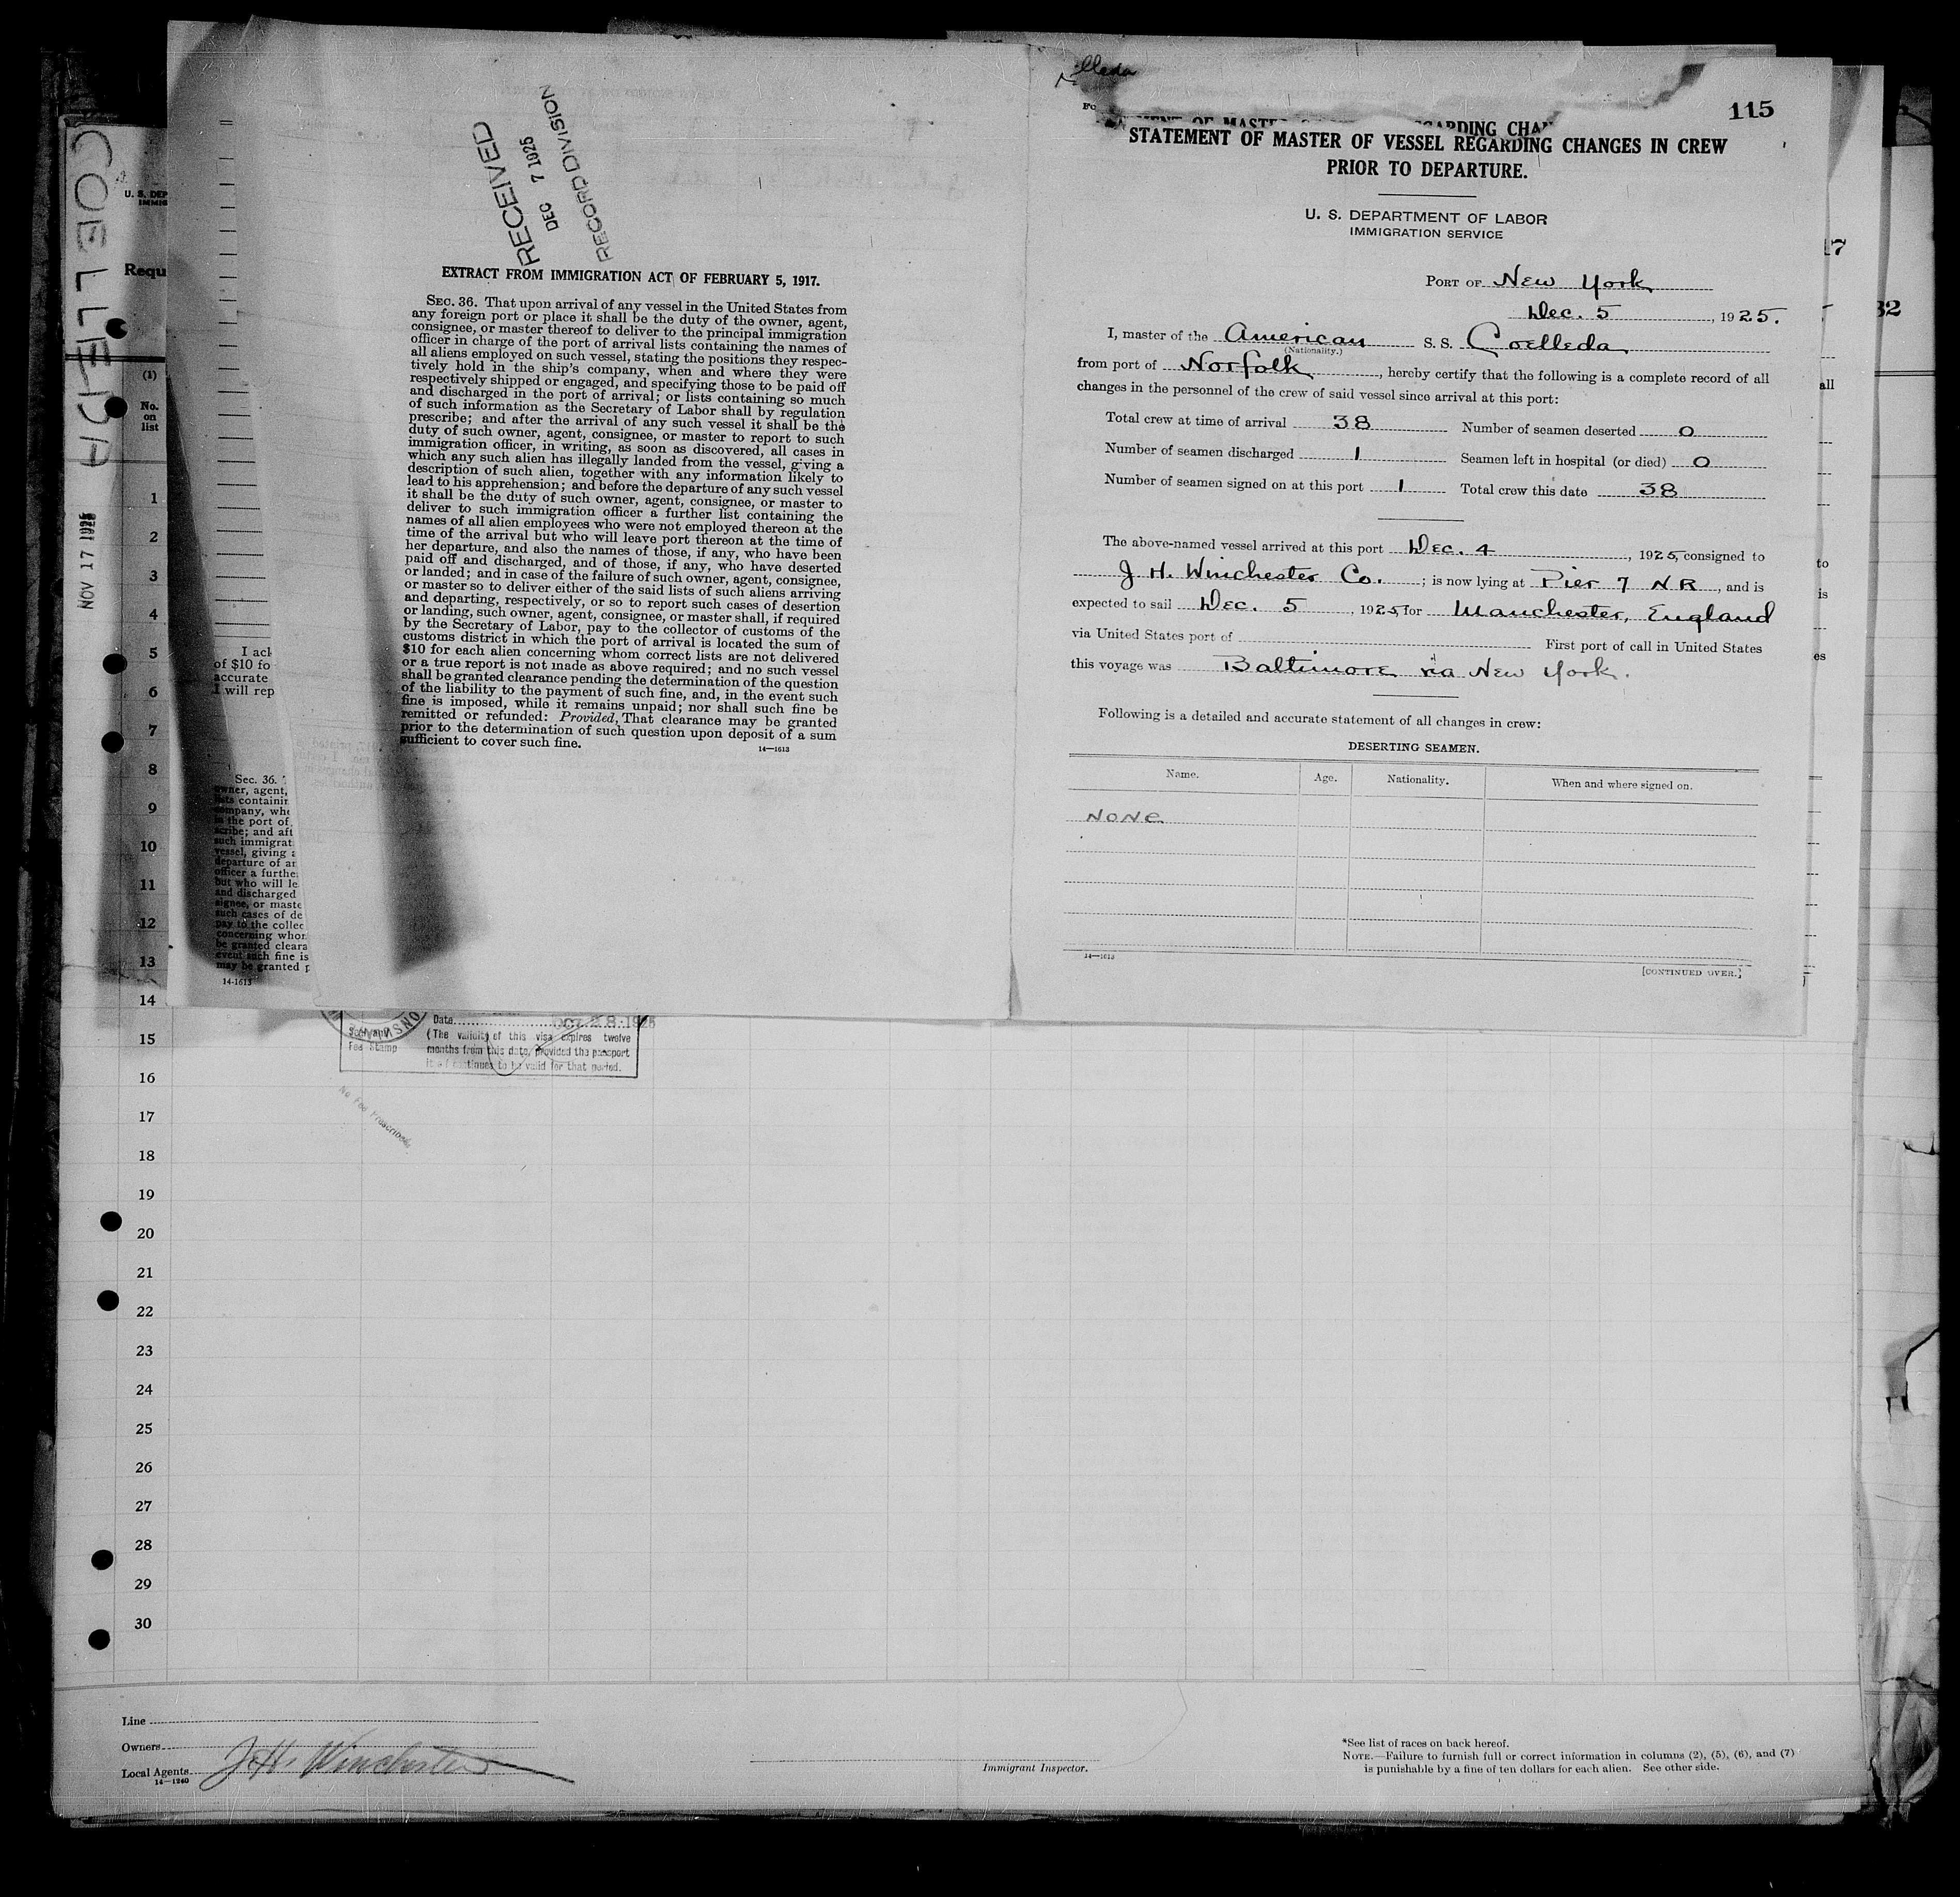 COELLEDA
NOV 17 1925
U. S. DEP
IMMIG
Requ
(1)
No.
on
list
1
2
3
4
5
6
7
8
9
10
11
12
13
14
15
16
17
18
19
20
21
22
23
24
25
26
27
28
29
30
I ack
of $10 fo
accurate
I will rep
Sec. 36.
owner, agent,
lists containin
company, whe
in the port of
scribe; and aft
such immigrat
vessel, giving a
departure of an
officer a further
but who will le
and discharged
signee, or maste
such cases of de
pay to the collec
concerning whom
be granted cleara
event such fine is
may be granted p
14-1613
RECEIVED
DEC 7 1925
RECORD DIVISION
EXTRACT FROM IMMIGRATION ACT OF FEBRUARY 5, 1917.
SEC. 36. That upon arrival of any vessel in the United States from
any foreign port or place it shall be the duty of the owner, agent,
consignee, or master thereof to deliver to the principal immigration
officer in charge of the port of arrival lists containing the names of
all aliens employed on such vessel, stating the positions they respec-
tively hold in the ship's company, when and where they were
respectively shipped or engaged, and specifying those to be paid off
and discharged in the port of arrival; or lists containing so much
of such information as the Secretary of Labor shall by regulation
prescribe; and after the arrival of any such vessel it shall be the
duty of such owner, agent, consignee, or master to report to such
immigration officer, in writing, as soon as discovered, all cases in
which any such alien has illegally landed from the vessel, giving a
description of such alien, together with any information likely to
lead to his apprehension; and before the departure of any such vessel
it shall be the duty of such owner, agent, consignee, or master to
deliver to such immigration officer a further list containing the
names of all alien employees who were not employed thereon at the
time of the arrival but who will leave port thereon at the time of
her departure, and also the names of those, if any, who have been
paid off and discharged, and of those, if any, who have deserted
or landed; and in case of the failure of such owner, agent, consignee,
or master so to deliver either of the said lists of such aliens arriving
and departing, respectively, or so to report such cases of desertion
or landing, such owner, agent, consignee, or master shall, if required
by the Secretary of Labor, pay to the collector of customs of the
customs district in which the port of arrival is located the sum of
$10 for each alien concerning whom correct lists are not delivered
or a true report is not made as above required; and no such vessel
shall be granted clearance pending the determination of the question
of the liability to the payment of such fine, and, in the event such
fine is imposed, while it remains unpaid; nor shall such fine be
remitted or refunded: Provided, That clearance may be granted
prior to the determination of such question upon deposit of a sum
sufficient to cover such fine.
14—1613
Date OCT 28 1925
Fee Stamp
(The validity of this visa expires twelve
months from this date, provided the passport
continues to be valid for that period.
No Fee Prescribed
lleda
115
STATEMENT OF MASTER OF VESSEL REGARDING CHANGES IN CREW
PRIOR TO DEPARTURE.
U. S. DEPARTMENT OF LABOR
IMMIGRATION SERVICE
PORT OF New York
Dec. 5, 1925.
I, master of the American S. S. Coelleda
(Nationality.)
from port of Norfolk, hereby certify that the following is a complete record of all
changes in the personnel of the crew of said vessel since arrival at this port:
Total crew at time of arrival 38 Number of seamen deserted 0
Number of seamen discharged 1 Seamen left in hospital (or died) 0
Number of seamen signed on at this port 1 Total crew this date 38
The above-named vessel arrived at this port Dec. 4, 1925, consigned to
J H. Winchester Co.; is now lying at Pier 7 N R, and is
expected to sail Dec. 5, 1925, for Manchester, England
via United States port of First port of call in United States
this voyage was Baltimore via New York.
Following is a detailed and accurate statement of all changes in crew:
DESERTING SEAMEN.
Name. Age. Nationality. When and where signed on.
None
14—1613
[CONTINUED OVER.]
17
32
all
to
is
es
Line
Owners
Local Agents J. H. Winchester
14—1240
Immigrant Inspector.
*See list of races on back hereof.
NOTE.—Failure to furnish full or correct information in columns (2), (5), (6), and (7)
is punishable by a fine of ten dollars for each alien. See other side.